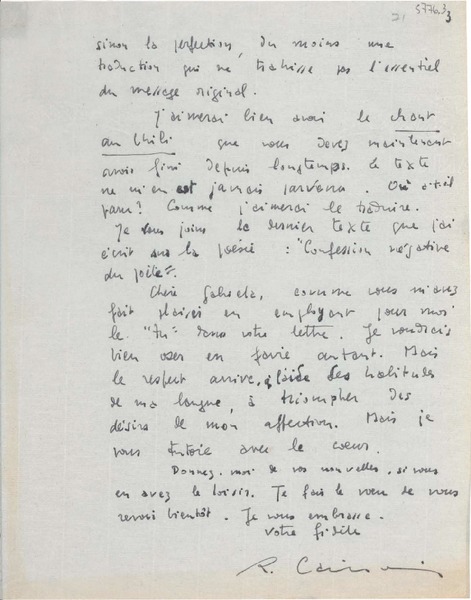 5776.33
sinon la perfection, du moins une
traduction qui ne trahisse pas l'essentiel
du message original.
J'aimerai bien avoir le chant
au Chili que vous devez maintenant
avoir fini depuis longtemps. Le texte
ne m'en est jamais parvenu. Où a-t-il
paru? Comme j'aimerai le traduire.
Je vous joins le dernier texte que j'ai
écrit sur la poésie : "Confession négative
du poète".
Chère Gabriela, comme vous m'avez
fait plaisir en employant pour moi
le "tu" dans votre lettre. Je voudrais
bien oser en faire autant. Mais
le respect arrive, à l'aide des habitudes
de ma langue, à triompher des
désirs de mon affection. Mais je
vous tutoie avec le cœur.
Donnez-moi de vos nouvelles, si vous
en avez le loisir. Je fais le vœu de vous
revoir bientôt. Je vous embrasse.
Votre fidèle
R.